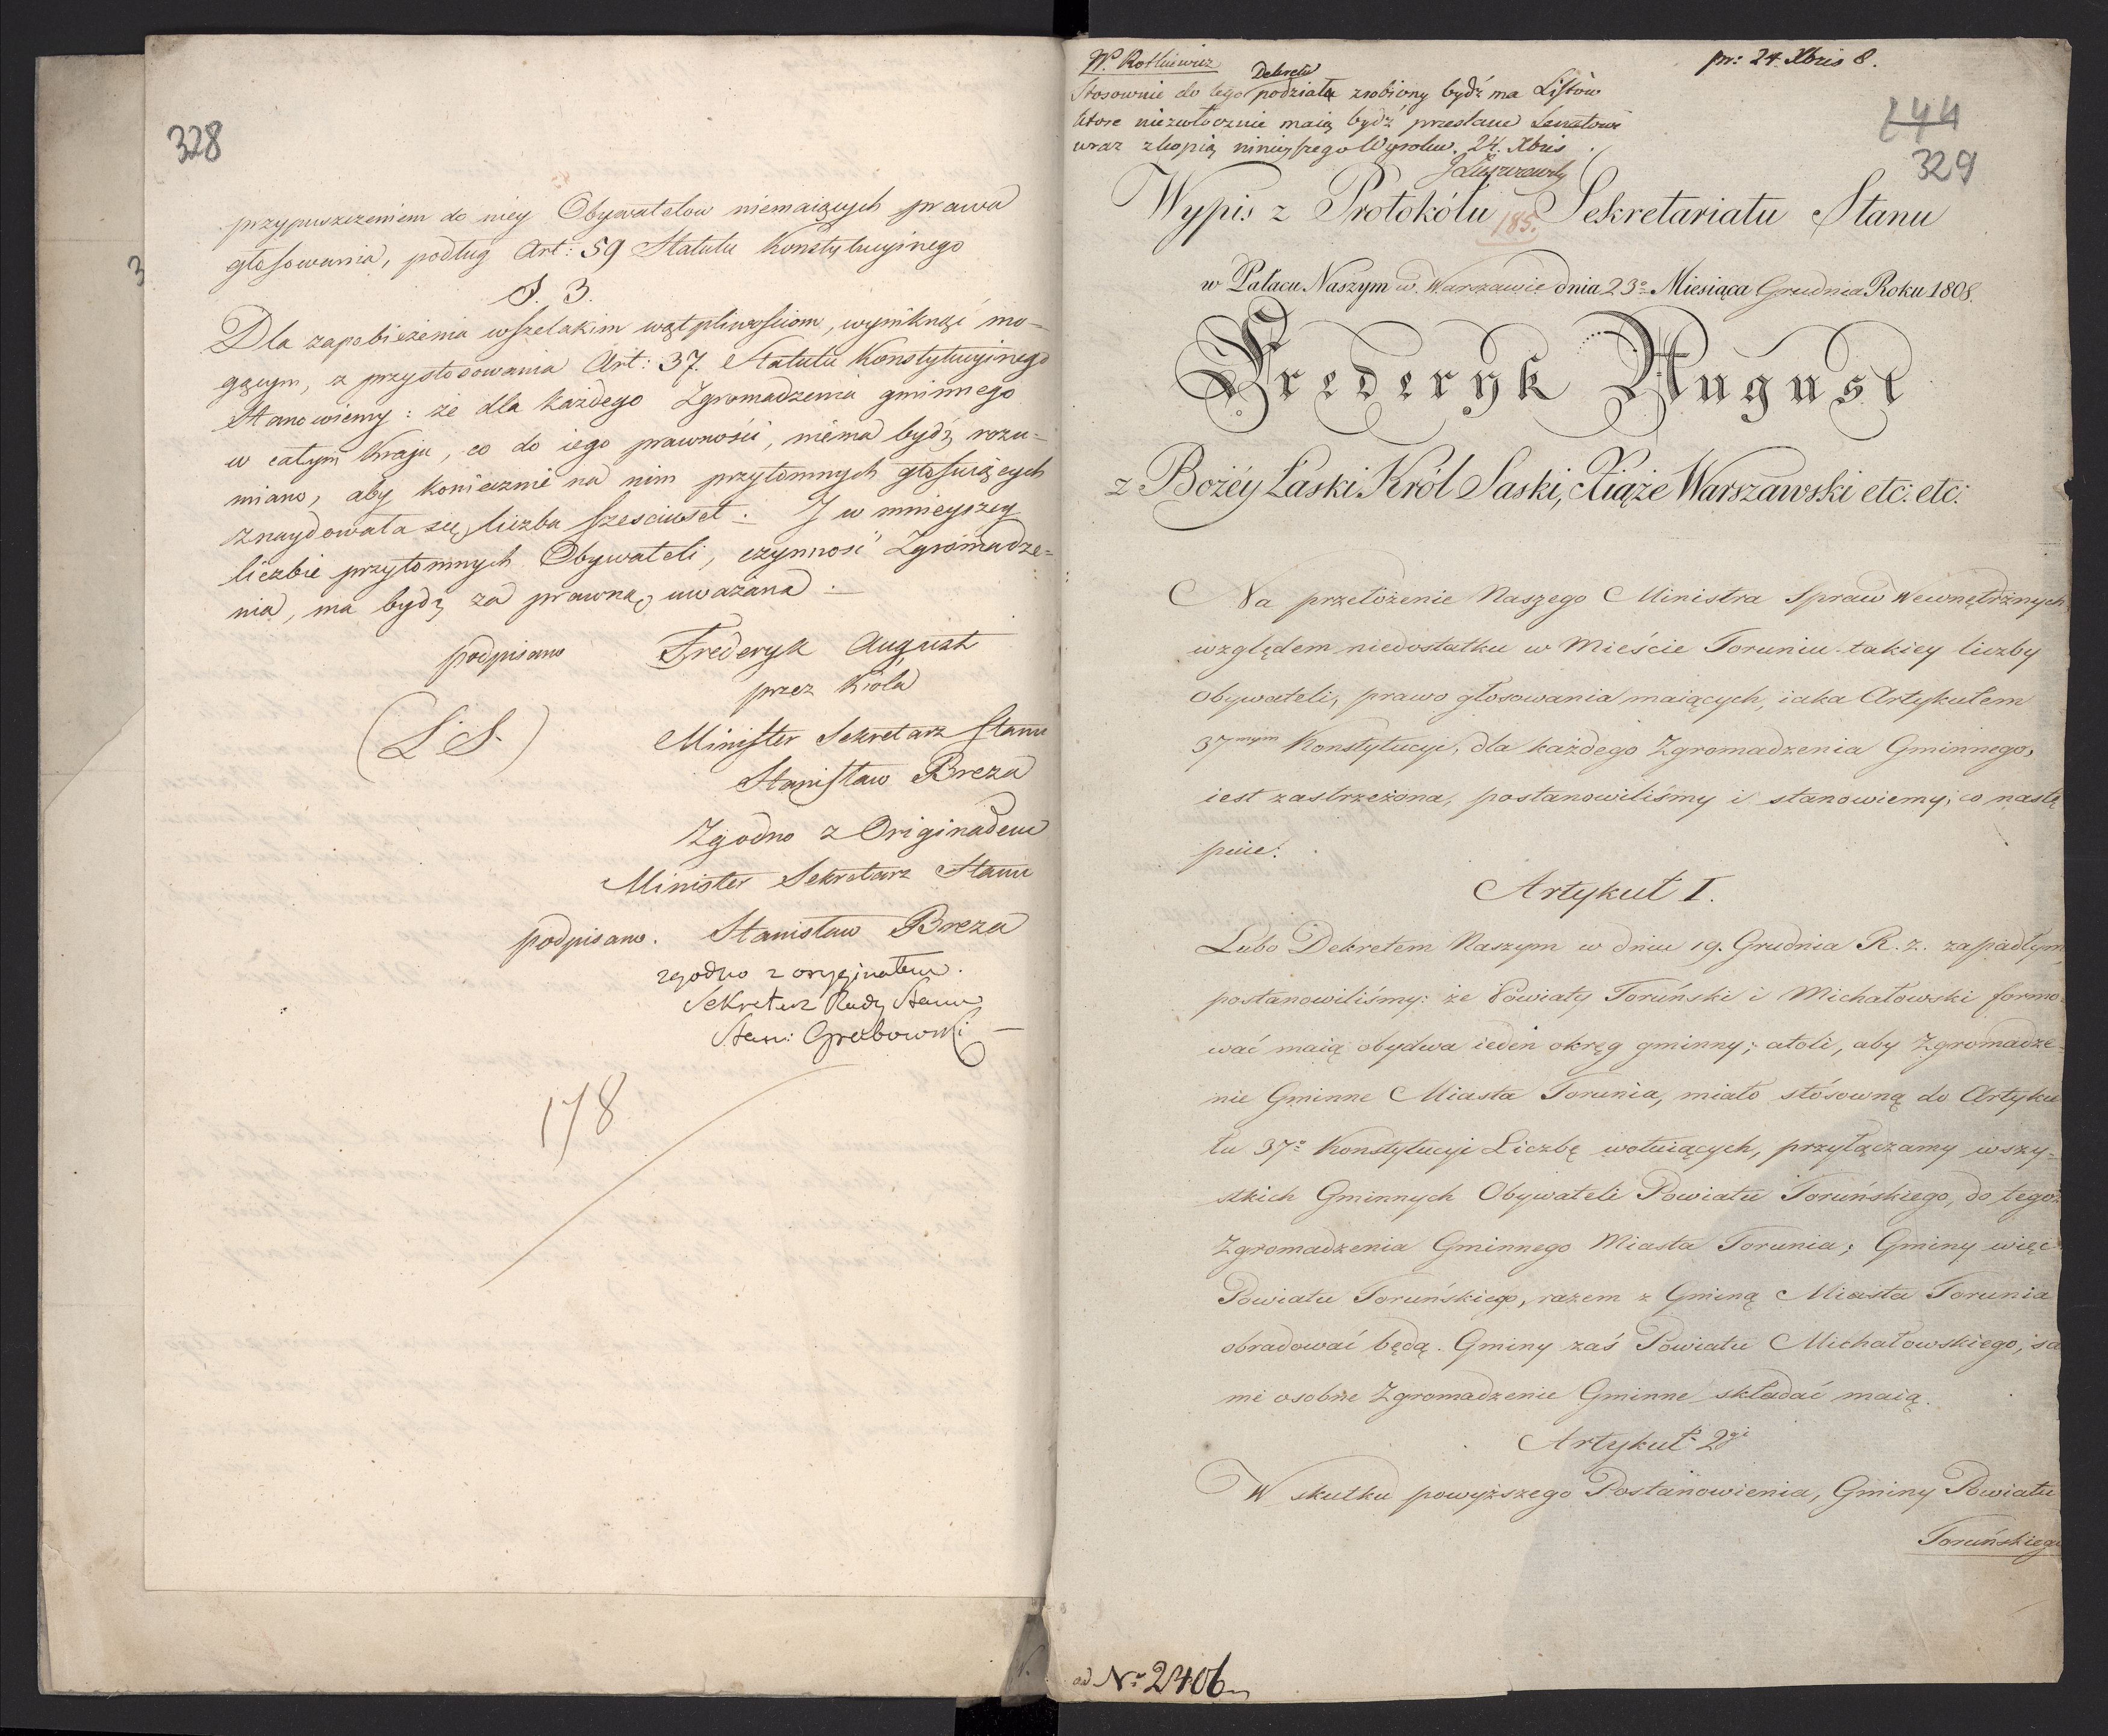 328
przypuszczeniem do niey Obywatelow niemaiących prawa
głosowania, podług Art: 59 Statutu Konstytucyinego
§. 3.
Dla zapobieżenia wszelakim wątpliwościom, wyniknąć mo-
gącym, z przystosowania Art: 37. Statutu Konstytucyinego
Stanowiemy: że dla każdego Zgromadzenia gminnego
w całym Kraju, co do iego prawności, niema bydź rozu-
miano, aby koniecznie na nim przytomnych głosuiących
znaydowała się liczba sześciuset. I w mnieyszey
liczbie przytomnych Obywateli, czynność Zgromadze-
nia, ma bydź za prawną uważana.
podpisano Frederyk August
przez Króla
(L.S.) Minister Sekretarz Stanu
Stanisław Breza
Zgodno z Originałem
Minister Sekretarz Stanu
podpisano. Stanisław Breza
zgodno z oryginałem.
Sekretarz Rady Stanu
Stan: Grabowski
178
3
W. Rotkiewicz
pr: 24. Xbris 8.
Dekretu
Stosownie do tego podziału zrobiony bydź ma Listow
ktore niezwłocznie maią bydź przesłane Senatowi
wraz z kopią ninieyszego Wyroku. 24. Xbris
244
329
Wypis z Protokółu Sekretariatu Stanu
185.
w Pałacu Naszym w Warszawie dnia 23o Miesiąca Grudnia Roku 1808.
Frederyk August
z Bożéy Łaski Król Saski, Xiąże Warszawski etc: etc:
Na przełożenie Naszego Ministra Spraw Wewnętrznych
względem niedostatku w Mieście Toruniu takiey liczby
Obywateli, prawo głosowania maiących, iaka Artykułem
37mym Konstytucyi, dla każdego Zgromadzenia Gminnego,
iest zastrzeżona, postanowiliśmy i stanowiemy, co nastę
puie:
Artykuł I.
Lubo Dekretem Naszym w dniu 19. Grudnia R. z. zapadłym,
postanowiliśmy: że Powiaty Toruński i Michałowski formo
wać maią obydwa ieden okręg gminny; atoli, aby Zgromadze-
nie Gminne Miasta Torunia, miało stósowną do Artyku
łu 37o Konstytucyi Liczbę wotuiących, przyłączamy wszy-
stkich Gminnych Obywateli Powiatu Toruńskiego, do tegoż
Zgromadzenia Gminnego Miasta Torunia; Gminy więc
Powiatu Toruńskiego, razem z Gminą Miasta Torunia
obradować będą. Gminy zaś Powiatu Michałowskiego, sa
me osobne Zgromadzenie Gminne składać maią.
Artykuł 2gi
W skutku powyższego Postanowienia, Gminy Powiatu
Toruńskiego
ad No 2406